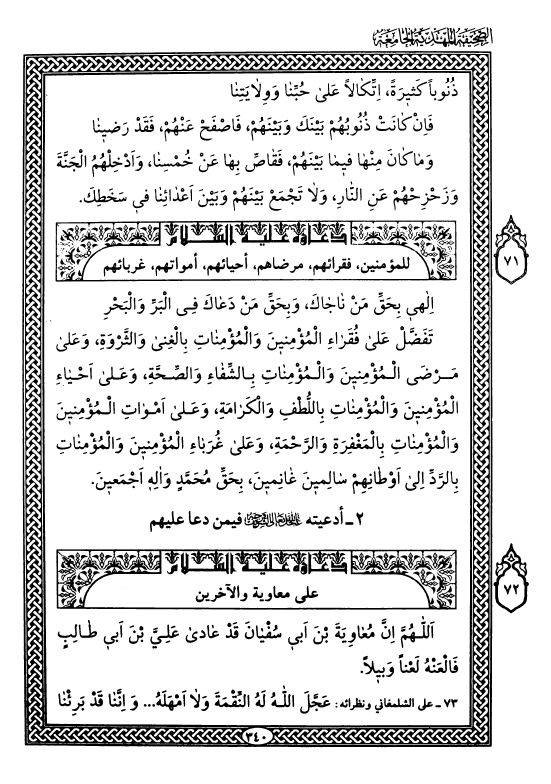 الصحيفة المهدية الجامعة
ذُنُوباً كَثيرَةً، اِتِّكالاً عَلىٰ حُبِّنا وَوِلايَتِنا
فَإِنْ كانَتْ ذُنُوبُهُمْ بَيْنَكَ وَبَيْنَهُمْ، فَاصْفَحْ عَنْهُمْ، فَقَدْ رَضينا
وَما كانَ مِنْها فيما بَيْنَهُمْ، فَقاصِّ بِها عَنْ خُمْسِنا، وَاَدْخِلْهُمُ الْجَنَّةَ
وَزَحْزِحْهُمْ عَنِ النَّارِ، وَلا تَجْمَعْ بَيْنَهُمْ وَبَيْنَ اَعْدائِنا في سَخَطِكَ.
دعاؤه عليه السلام
٧١
للمؤمنين، فقرائهم، مرضاهم، أحيائهم، أمواتهم، غربائهم
اِلٰهي بِحَقِّ مَنْ ناجاكَ، وَبِحَقِّ مَنْ دَعاكَ فِي الْبَرِّ وَالْبَحْرِ
تَفَضَّلْ عَلىٰ فُقَراءِ الْمُؤْمِنينَ وَالْمُؤْمِناتِ بِالْغِنىٰ وَالثَّرْوَةِ، وَعَلىٰ
مَرْضَى الْمُؤْمِنينَ وَالْمُؤْمِناتِ بِالشِّفاءِ وَالصِّحَّةِ، وَعَلىٰ اَحْياءِ
الْمُؤْمِنينَ وَالْمُؤْمِناتِ بِاللُّطْفِ وَالْكَرامَةِ، وَعَلىٰ اَمْواتِ الْمُؤْمِنينَ
وَالْمُؤْمِناتِ بِالْمَغْفِرَةِ وَالرَّحْمَةِ، وَعَلىٰ غُرَباءِ الْمُؤْمِنينَ وَالْمُؤْمِناتِ
بِالرَّدِّ اِلىٰ اَوْطانِهِمْ سالِمينَ غانِمينَ، بِحَقِّ مُحَمَّدٍ وَالِهِ اَجْمَعينَ.
٢ ـ أدعيته فيمن دعا عليهم
دعاؤه عليه السلام
٧٢
على معاوية والآخرين
اَللّٰهُمَّ اِنَّ مُعاوِيَةَ بْنَ اَبي سُفْيانَ قَدْ عادىٰ عَلِيَّ بْنَ اَبي طالِبٍ
فَالْعَنْهُ لَعْناً وَبيلاً.
٧٣ ـ على الشلمغاني ونظرائه: عَجَّلَ اللّٰهُ لَهُ النِّقْمَةَ وَلا اَمْهَلَهُ... وَ اِنَّنا قَدْ بَرِئْنا
٣٤٠